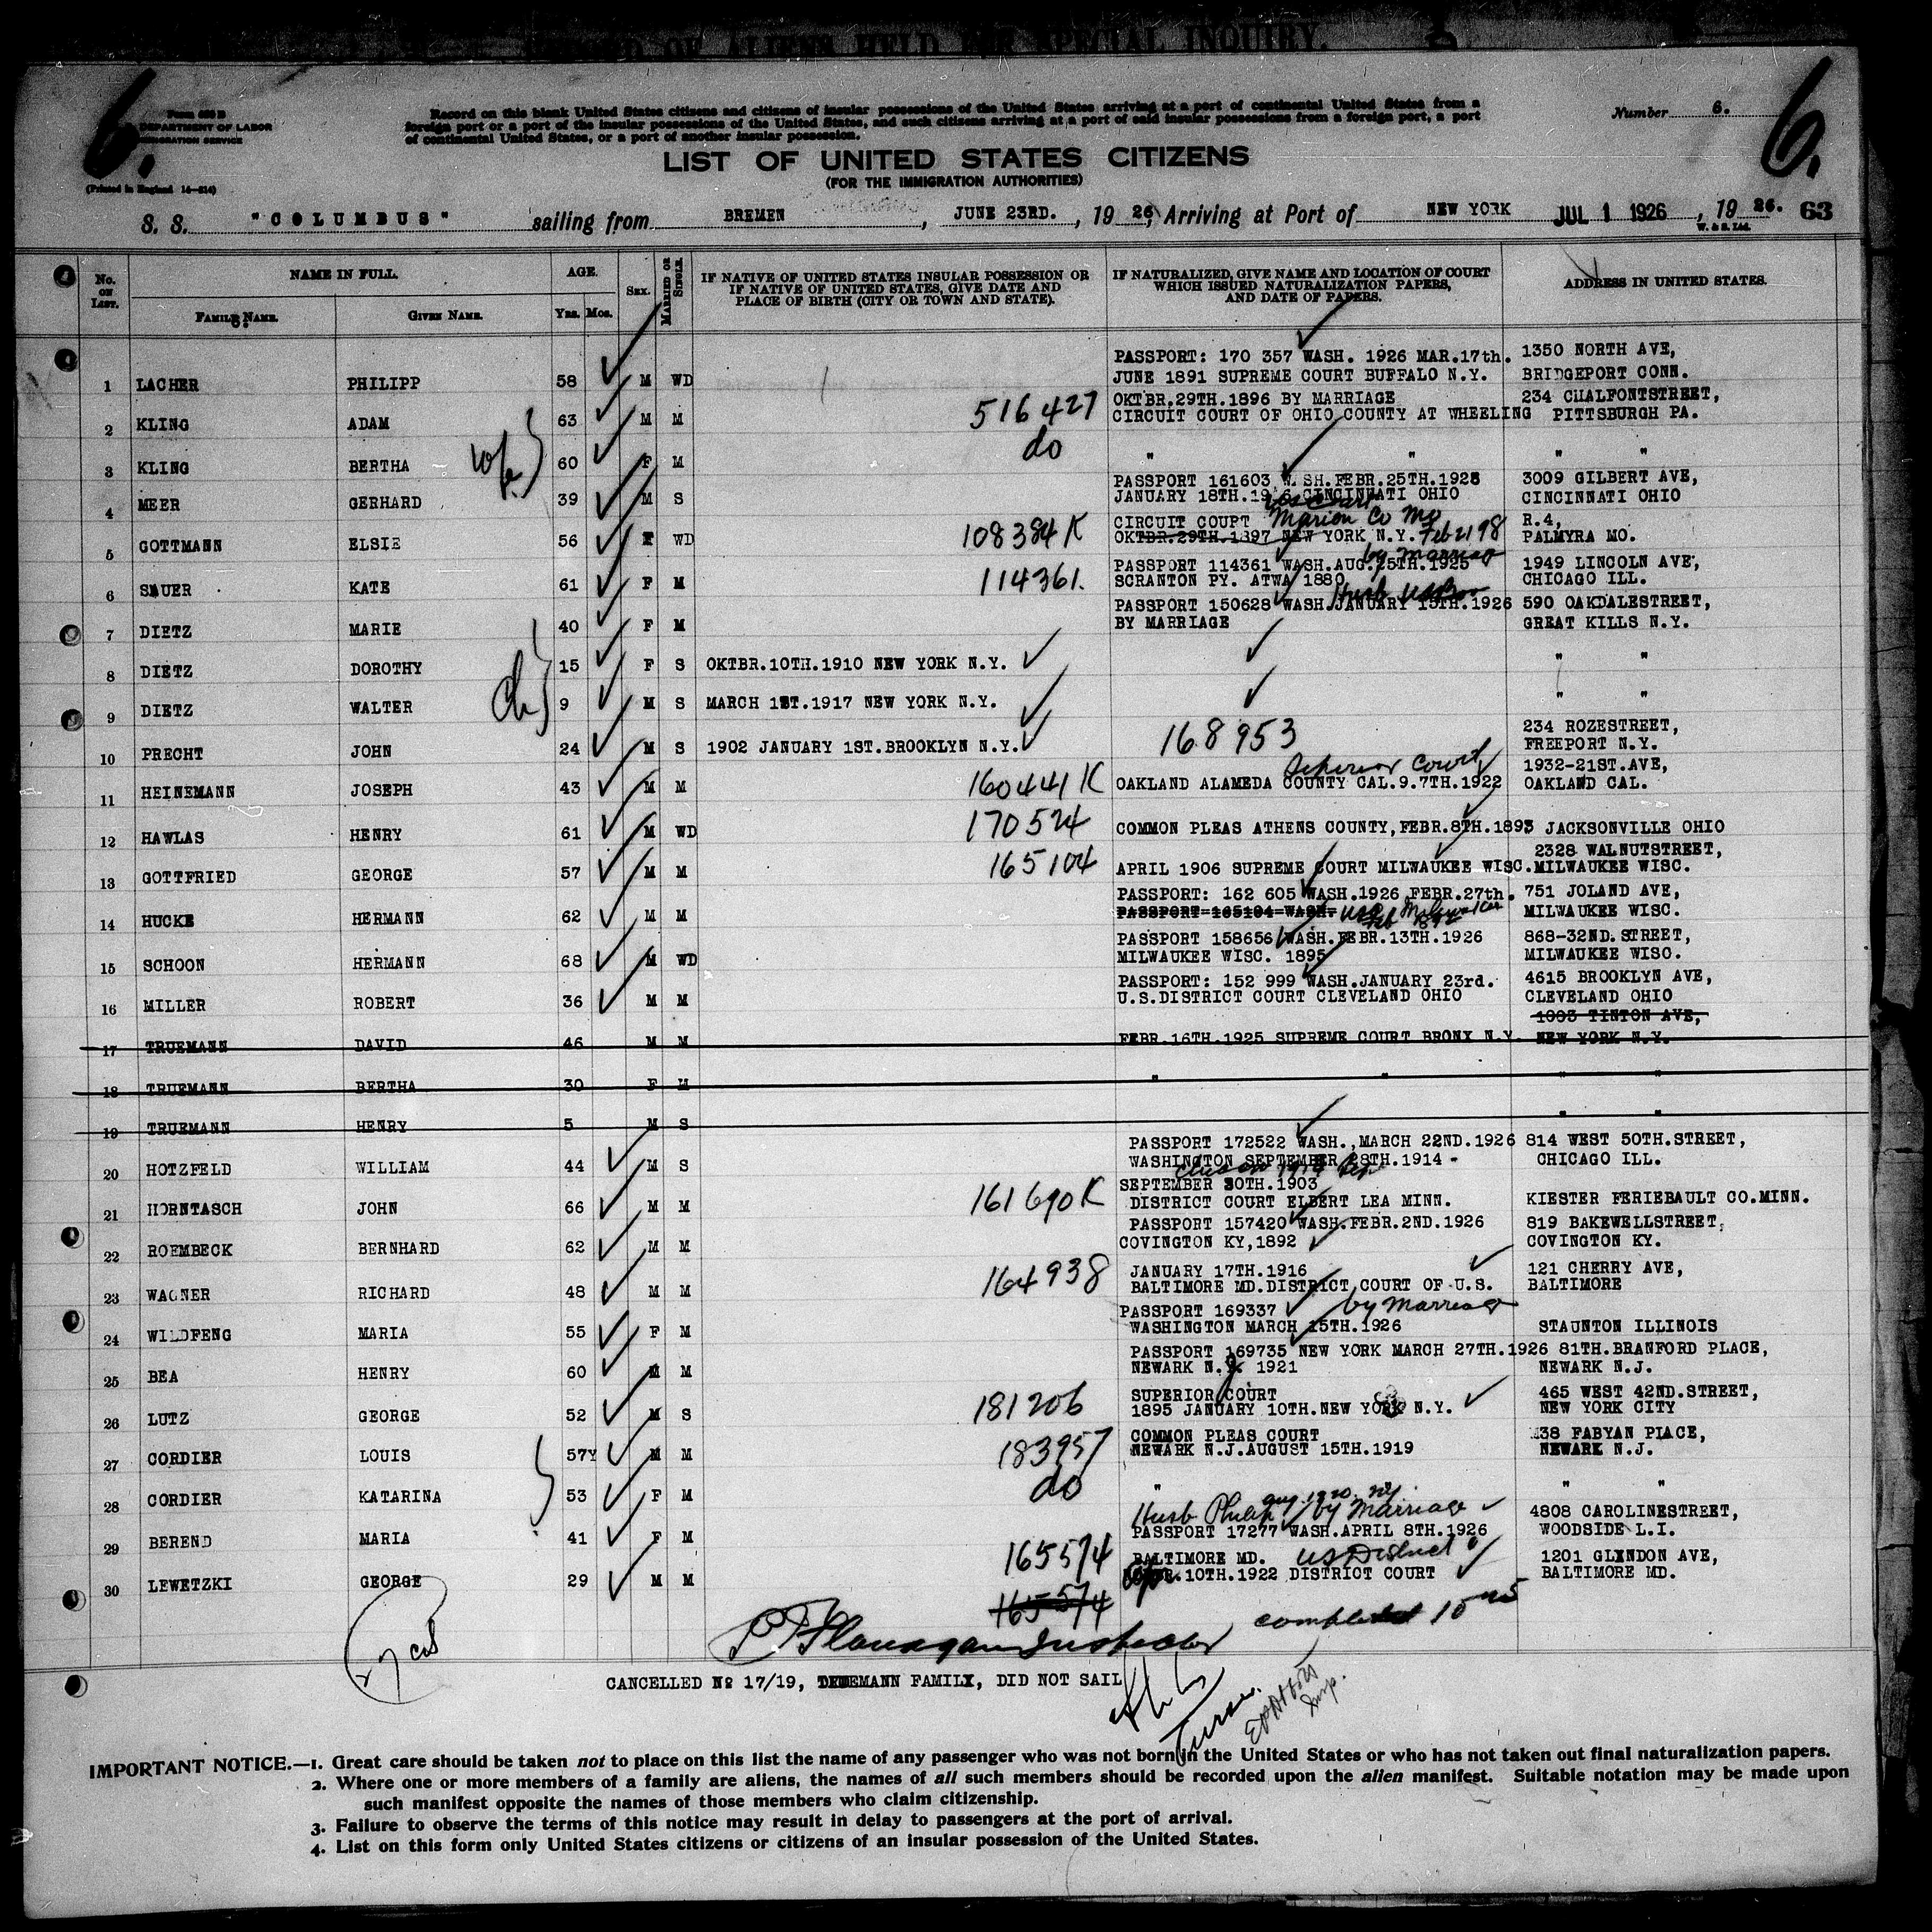 RECORD OF ALIENS HELD FOR SPECIAL INQUIRY.
6.
6.
DEPARTMENT OF LABOR
IMMIGRATION SERVICE
(Printed in England 14—214)
Record on this blank United States citizens and citizens of insular possessions of the United States arriving at a port of continental United States from a
foreign port or a port of the insular possessions of the United States, and such citizens arriving at a port of said insular possessions from a foreign port, a port
of continental United States, or a port of another insular possession.
Number 6.
LIST OF UNITED STATES CITIZENS
(FOR THE IMMIGRATION AUTHORITIES)
S. S. "COLUMBUS" sailing from BREMEN, JUNE 23RD., 19 26, Arriving at Port of NEW YORK JUL 1 1926, 19 26. 63
W. & S. Ltd.
No. ON LIST. NAME IN FULL. AGE. SEX. MARRIED OR SINGLE. IF NATIVE OF UNITED STATES INSULAR POSSESSION OR IF NATIVE OF UNITED STATES, GIVE DATE AND PLACE OF BIRTH (CITY OR TOWN AND STATE). IF NATURALIZED, GIVE NAME AND LOCATION OF COURT WHICH ISSUED NATURALIZATION PAPERS, AND DATE OF PAPERS. ADDRESS IN UNITED STATES.
FAMILY NAME. GIVEN NAME. Yrs. Mos.
PASSPORT: 170 357 WASH. 1926 MAR.17th. 1350 NORTH AVE,
1 LACHER PHILIPP 58 M WD JUNE 1891 SUPREME COURT BUFFALO N.Y. BRIDGEPORT CONN.
OKTBR.29TH.1896 BY MARRIAGE 234 CHALFONTSTREET,
2 KLING ADAM 63 M M 516427 CIRCUIT COURT OF OHIO COUNTY AT WHEELING PITTSBURGH PA.
3 KLING BERTHA wife 60 F M do " " " "
PASSPORT 161603 WASH.FEBR.25TH.1925 3009 GILBERT AVE,
4 MEER GERHARD 39 M S JANUARY 18TH.19 6 CINCINNATI OHIO CINCINNATI OHIO
CIRCUIT COUPT Marion Co Mo R.4,
5 GOTTMANN ELSIE 56 F WD 108384K OKTBR.29TH.1897 NEW YORK N.Y. Feb 21 98 PALMYRA MO.
by marriage
PASSPORT 114361 WASH.AUG.25TH.1925 1949 LINCOLN AVE,
6 SAUER KATE 61 F M 114361. SCRANTON PY. ATWA 1880 CHICAGO ILL.
PASSPORT 150628 WASH.JANUARY 15TH.1926 590 OAKDALESTREET,
7 DIETZ MARIE 40 F M BY MARRIAGE GREAT KILLS N.Y.
8 DIETZ DOROTHY 15 F S OKTBR.10TH.1910 NEW YORK N.Y. " "
9 DIETZ WALTER ch 9 M S MARCH 1ST.1917 NEW YORK N.Y. " "
234 ROZESTREET,
10 PRECHT JOHN 24 M S 1902 JANUARY 1ST.BROOKLYN N.Y. 168953 FREEPORT N.Y.
Superior Court 1932-21ST.AVE,
11 HEINEMANN JOSEPH 43 M M 160441K OAKLAND ALAMEDA COUNTY CAL.9.7TH.1922 OAKLAND CAL.
12 HAWLAS HENRY 61 M WD 170524 COMMON PLEAS ATHENS COUNTY,FEBR.8TH.1893 JACKSONVILLE OHIO
2328 WALNUTSTREET,
13 GOTTFRIED GEORGE 57 M M 165104 APRIL 1906 SUPREME COURT MILWAUKEE WISC. MILWAUKEE WISC.
PASSPORT: 162 605 WASH.1926 FEBR.27th. 751 JOLAND AVE,
14 HUCKE HERMANN 62 M M PASSPORT=165104=WASH. Milwaukee MILWAUKEE WISC.
PASSPORT 158656 WASH.FEBR.13TH.1926 868-32ND.STREET,
15 SCHOON HERMANN 68 M WD MILWAUKEE WISC. 1895 MILWAUKEE WISC.
PASSPORT: 152 999 WASH.JANUARY 23rd. 4615 BROOKLYN AVE,
16 MILLER ROBERT 36 M M U.S.DISTRICT COURT CLEVELAND OHIO CLEVELAND OHIO
1093 TINTON AVE,
17 TRUEMANN DAVID 46 M M FEBR.16TH.1925 SUPREME COURT BRONX N.Y. NEW YORK N.Y.
18 TRUEMANN BERTHA 30 F M " " " "
19 TRUEMANN HENRY 5 M S " "
PASSPORT 172522 WASH.,MARCH 22ND.1926 814 WEST 50TH.STREET,
20 HOTZFELD WILLIAM 44 M S WASHINGTON SEPTEMBER 28TH.1914 CHICAGO ILL.
SEPTEMBER 30TH.1903
21 HORNTASCH JOHN 66 M M 161690K DISTRICT COURT ELBERT LEA MINN. KIESTER FERIEBAULT CO.MINN.
PASSPORT 157420 WASH.FEBR.2ND.1926 819 BAKEWELLSTREET,
22 ROEMBECK BERNHARD 62 M M COVINGTON KY,1892 COVINGTON KY.
JANUARY 17TH.1916 121 CHERRY AVE,
23 WAGNER RICHARD 48 M M 164938 BALTIMORE MD.DISTRICT COURT OF U.S. BALTIMORE
PASSPORT 169337 by marriage
24 WILDFENG MARIA 55 F M WASHINGTON MARCH 15TH.1926 STAUNTON ILLINOIS
PASSPORT 169735 NEW YORK MARCH 27TH.1926 81TH.BRANFORD PLACE,
25 BEA HENRY 60 M M NEWARK N.J. 1921 NEWARK N.J.
SUPERIOR COURT 465 WEST 42ND.STREET,
26 LUTZ GEORGE 52 M S 181206 1895 JANUARY 10TH.NEW YORK N.Y. NEW YORK CITY
COMMON PLEAS COURT 38 FABYAN PLACE,
27 CORDIER LOUIS 57Y M M 183957 NEWARK N.J.AUGUST 15TH.1919 NEWARK N.J.
28 CORDIER KATARINA 53 F M do " " " "
Husb Philip Aug. 1920. NY. by Marriage 4808 CAROLINESTREET,
29 BEREND MARIA 41 F M PASSPORT 17277 WASH.APRIL 8TH.1926 WOODSIDE L.I.
BALTIMORE MD. US District 1201 GLENDON AVE,
30 LEWETZKI GEORGE 29 M M 165574 10TH.1922 DISTRICT COURT BALTIMORE MD.
165574
27 cit
Flanagan Inspector completed 10 25
CANCELLED No 17/19, TRUEMANN FAMILY, DID NOT SAIL
Insp.
IMPORTANT NOTICE.—1. Great care should be taken not to place on this list the name of any passenger who was not born in the United States or who has not taken out final naturalization papers.
2. Where one or more members of a family are aliens, the names of all such members should be recorded upon the alien manifest. Suitable notation may be made upon
such manifest opposite the names of those members who claim citizenship.
3. Failure to observe the terms of this notice may result in delay to passengers at the port of arrival.
4. List on this form only United States citizens or citizens of an insular possession of the United States.